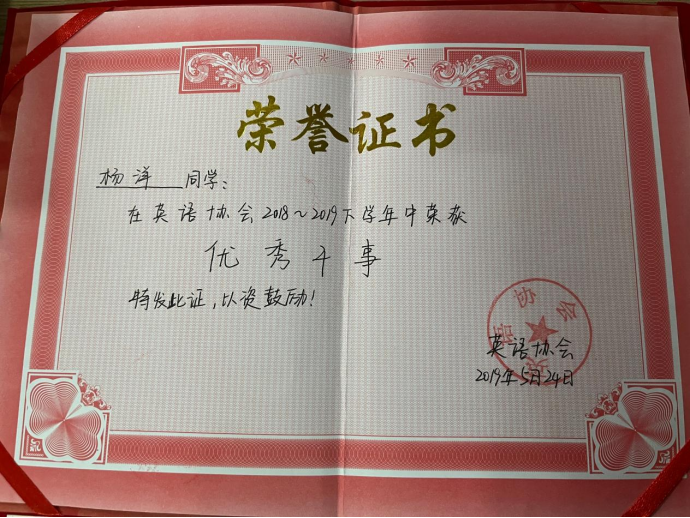 荣誉证书
杨洋 同学:
在英语协会2018～2019下学年中荣获
优秀干事
特发此证,以资鼓励!
英语协会
英语协会
2019年5月24日